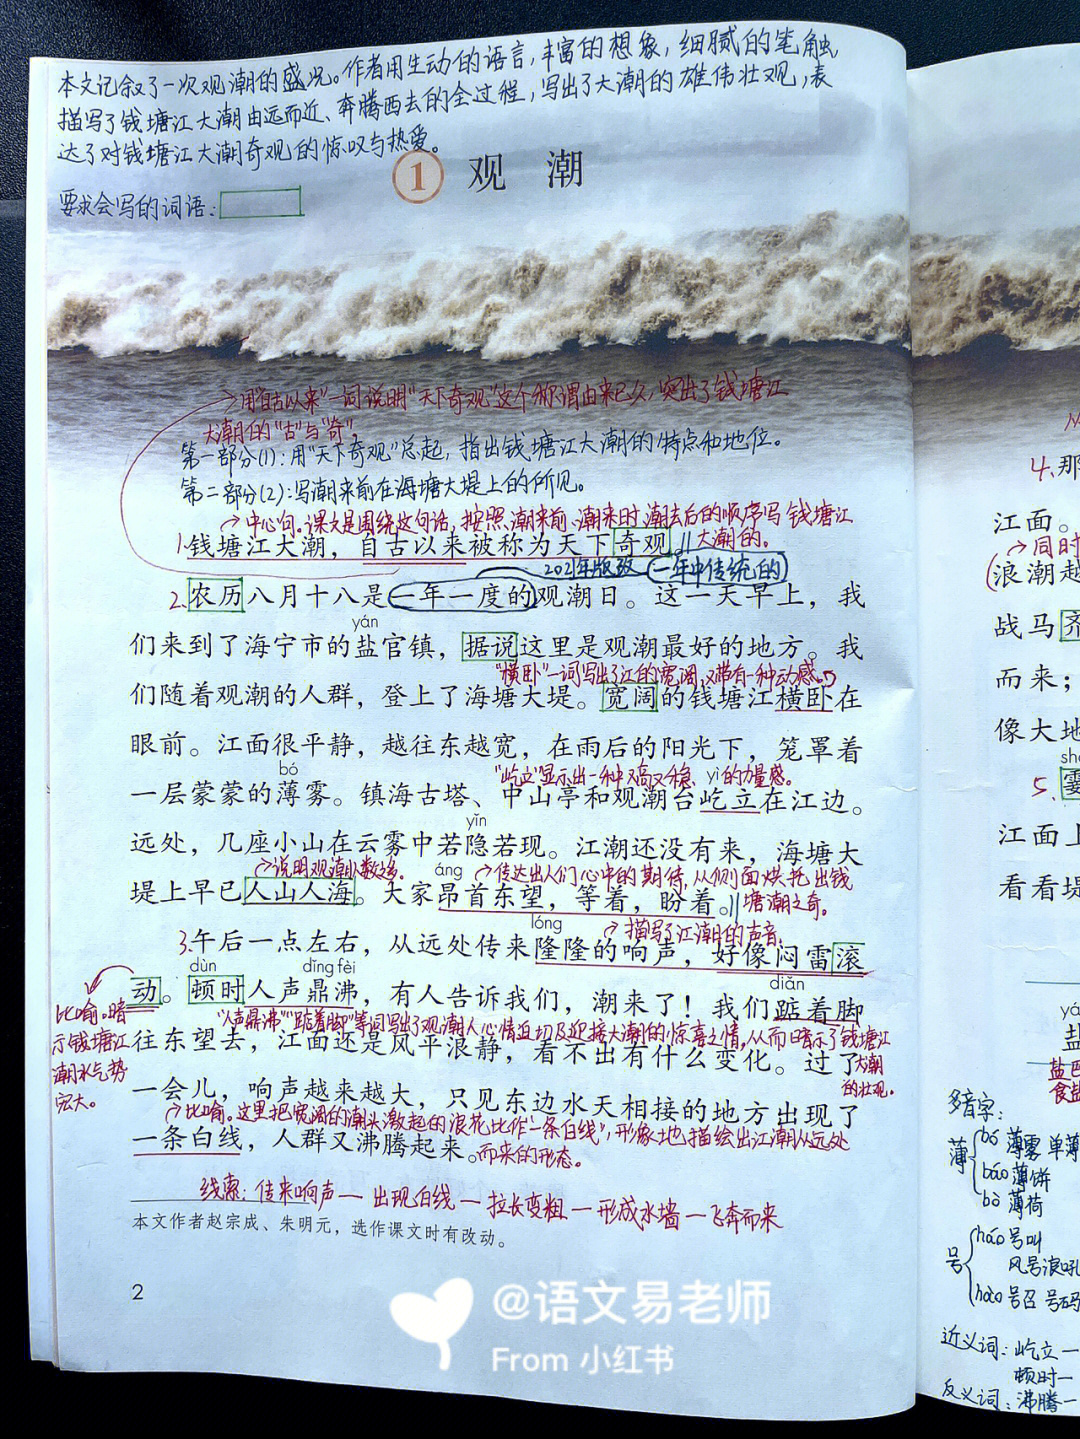 本文记叙了一次观潮的盛况。作者用生动的语言,丰富的想象,细腻的笔触,
描写了钱塘江大潮由远而近、奔腾西去的全过程,写出了大潮的雄伟壮观,表
达了对钱塘江大潮奇观的惊叹与热爱。
1 观 潮
要求会写的词语:
→用"自古以来"一词说明"天下奇观"这个称谓由来已久,突出了钱塘江
大潮的"古"与"奇"。
第一部分(1):用"天下奇观"总起,指出钱塘江大潮的特点和地位。
第二部分(2):写潮来前在海塘大堤上的所见。
→中心句。课文是围绕这句话,按照潮来前、潮来时、潮去后的顺序写钱塘江
大潮的。
1.钱塘江大潮,自古以来被称为天下奇观。
2021年版改 一年中传统的
2.农历八月十八是一年一度的观潮日。这一天早上,我
yán
们来到了海宁市的盐官镇,据说这里是观潮最好的地方。我
"横卧"一词写出了江的宽阔,又带有一种动感。
们随着观潮的人群,登上了海塘大堤。宽阔的钱塘江横卧在
眼前。江面很平静,越往东越宽,在雨后的阳光下,笼罩着
bó
"屹立"显示出一种又高又稳的力量感。
yì
一层蒙蒙的薄雾。镇海古塔、中山亭和观潮台屹立在江边。
yǐn
远处,几座小山在云雾中若隐若现。江潮还没有来,海塘大
→说明观潮人数之多。
áng
→传达出人们心中的期待,从侧面烘托出钱
塘潮之奇。
堤上早已人山人海。大家昂首东望,等着,盼着。
lóng
→描写了江潮的声音。
3.午后一点左右,从远处传来隆隆的响声,好像闷雷滚
dùn dǐng fèi diǎn
动。顿时人声鼎沸,有人告诉我们,潮来了!我们踮着脚
比喻。暗
示钱塘江
潮水气势
宏大。
"人声鼎沸""踮着脚"等词写出了观潮人心情迫切及迎接大潮的惊喜之情,从而暗示了钱塘江
大潮
的壮观。
往东望去,江面还是风平浪静,看不出有什么变化。过了
一会儿,响声越来越大,只见东边水天相接的地方出现了
→比喻。这里把宽阔的潮头激起的浪花比作"一条白线",形象地描绘出江潮从远处
而来的形态。
一条白线,人群又沸腾起来。
线索:传来响声—出现白线—拉长变粗—形成水墙—飞奔而来
本文作者赵宗成、朱明元,选作课文时有改动。
2
4.那
江面。
→同时
浪潮越
战马齐
而来;
像大地
5.霎
江面上
看看堤
盐
盐巴
食盐
多音字:
薄 bó 薄雾 单薄
báo 薄饼
bò 薄荷
号 háo 号叫
风号浪吼
hào 号召 号码
近义词:屹立—
顿时—
反义词:沸腾—
@语文易老师
From 小红书